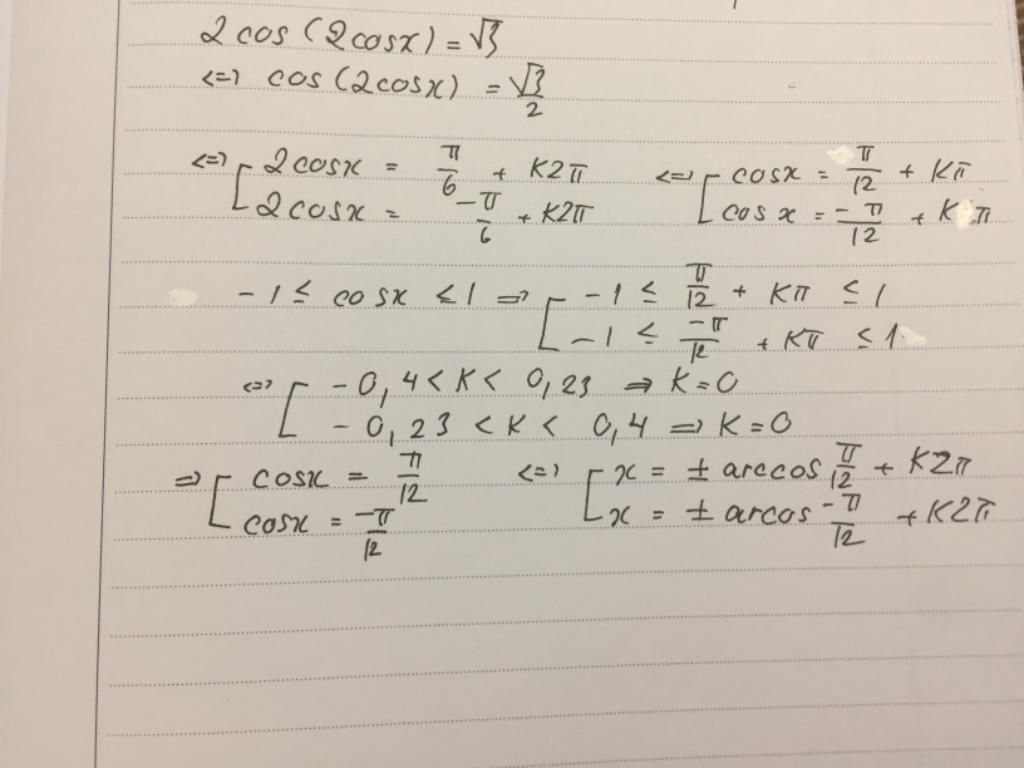 2 cos (2cosx) = √3
<=> cos (2cosx) = √3/2
<=> [ 2cosx = π/6 + K2π <=> [ cosx = π/12 + Kπ
2cosx = -π/6 + K2π cos x = -π/12 + Kπ
-1 ≤ cosx ≤ 1 => [ -1 ≤ π/12 + Kπ ≤ 1
-1 ≤ -π/12 + Kπ ≤ 1
<=> [ -0,4 < K < 0,23 => K=0
-0,23 < K < 0,4 => K=0
=> [ cosx = π/12 <=> [ x = ± arccos π/12 + K2π
cosx = -π/12 x = ± arcos -π/12 + K2π